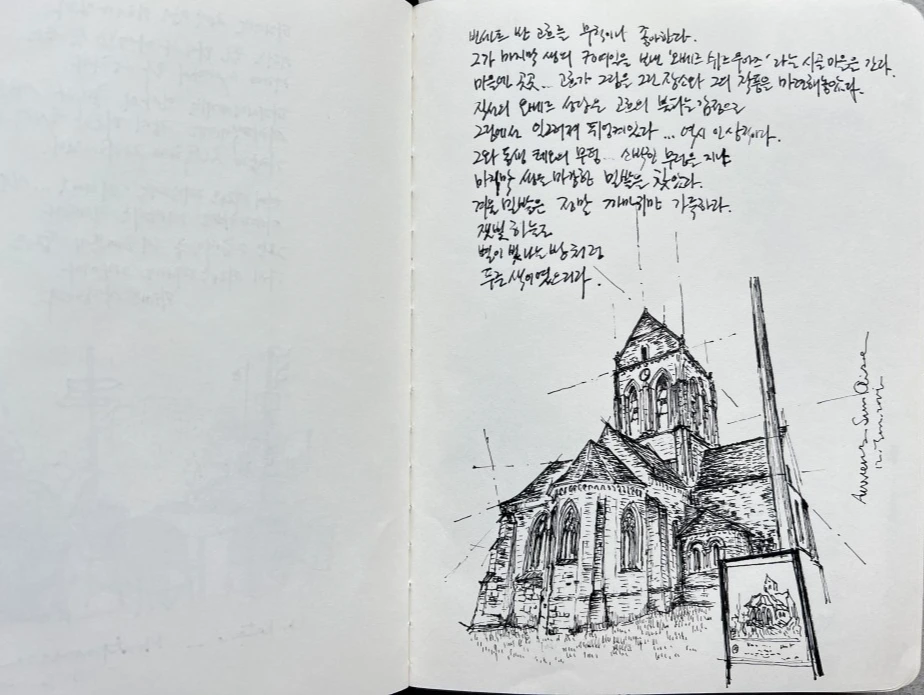 빈센트 반 고흐를 무척이나 좋아한다.
그가 마지막 생의 70여일을 보낸 '오베르 쉬르 우아즈' 라는 시골마을을 간다.
마을엔 곳곳... 고흐가 그림을 그린 장소와 그의 작품을 마련해놓았다.
직선의 오베르 성당은 고흐의 불타는 감정으로
그림에서 일그러져 뒤엉켜있다 ... 역시 인상적이다.
그와 동생 테오의 무덤... 소박한 무덤을 지나
마지막 생을 마감한 밀밭을 찾았다.
겨울 밀밭은 정말 까마귀만 가득하다.
잿빛 하늘도
별이 빛나는 밤처럼
푸른색이었으리라.
Auvers Sur Oise